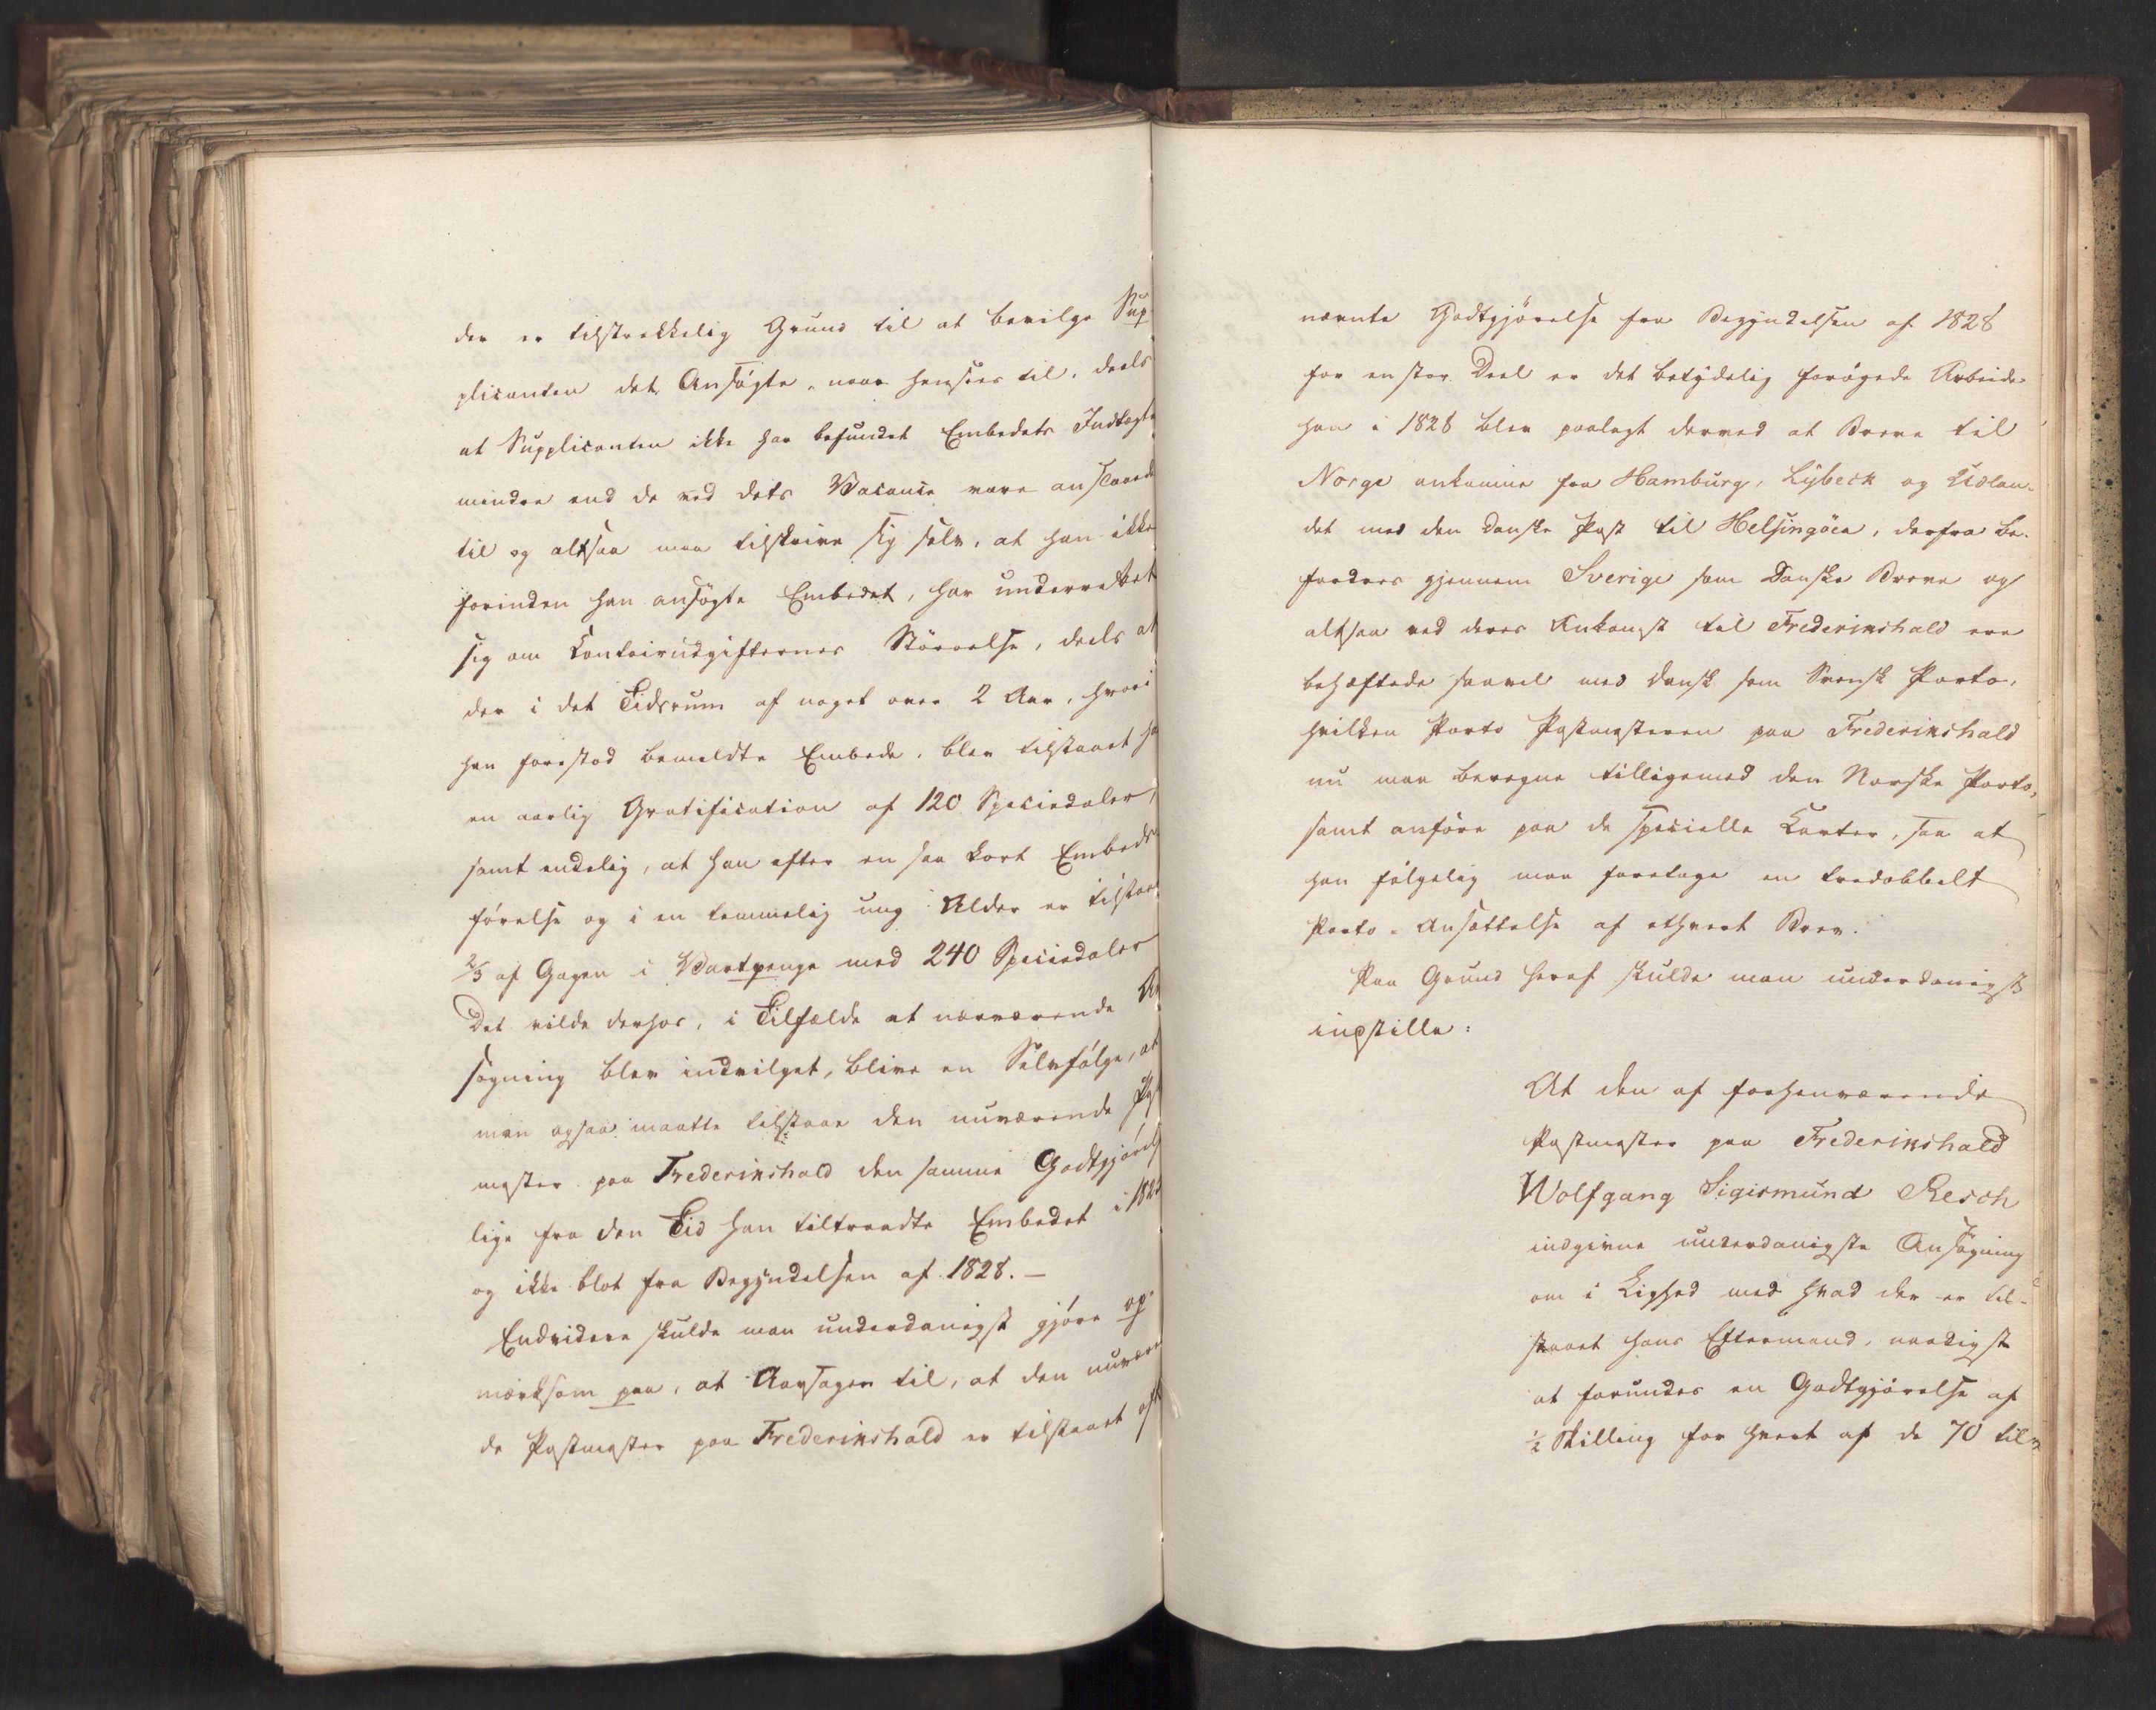 der er tilstrækkelig Grund til at bevilge Sup-
plicanten det Ansøgte, naar hensees til, deels
at Supplicanten ikke har befundet Embedets Indtægte
mindre end de ved dets Vacance vare anslaaede
til og altsaa maa tilskrive sig selv, at han ikke
forinden han ansøgte Embedet, har underrettet
sig om Contoirudgifternes Størrelse, deels at
der i det Tidsrum af noget over 2 Aar, hvori
han forestod bemeldte Embede, blev tilstaaet ha
en aarlig Gratification af 120 Speciedaler,
samt endelig, at han efter en saa kort Embeds-
førelse og i en temmelig ung Alder er tilstaaet
2/3 af Gagen i Vartpenge med 240 Speciedaler
Det vilde derhos, i Tilfælde at nærværende An
søgning blev indvilget, blive en Selvfølge, at
man ogsaa maatte tilstaae den nuværende Post
mester paa Frederikshald den samme Godtgjørels
lige fra den Tid han tiltraadte Embedet i 182
og ikke blot fra Begyndelsen af 1828. —
Endvidere skulde man underdanigst gjøre op-
mærksom paa, at Aarsagen til, at den nuværen
de Postmester paa Frederikshald er tilstaaet oft
nævnte Godtgjørelse fra Begyndelsen af 1828
for en stor Deel er det betydelig forøgede Arbeide
han i 1828 blev paalagt derved at Breve til
Norge ankomne fra Hamburg, Lybeck og Udlan-
det med den danske Post til Helsingöer, derfra be-
fordres gjennem Sverige som Danske Breve og
altsaa ved deres Ankomst til Frederikshald ere
behæftede saavel med dansk som Svensk Porto,
hvilken Porto Postmesteren paa Frederikshald
nu maa beregne tilligemed den Norske Porto,
samt anføre paa de specielle Karter, saa at
han følgelig maa foretage en tredobbelt
Porto-Ansættelse af ethvert Brev.
Paa Grund heraf skulde man underdanigst
indstille:
At den af forhenværende
Postmester paa Frederikshald
Wolfgang Sigismund Resch
indgivne underdanigste Ansøgning
om i Lighed med hvad der er til-
staaet hans Eftermand, naadigst
at forundes en Godtgjørelse af
1/2 Skilling for hvert af de 70 til